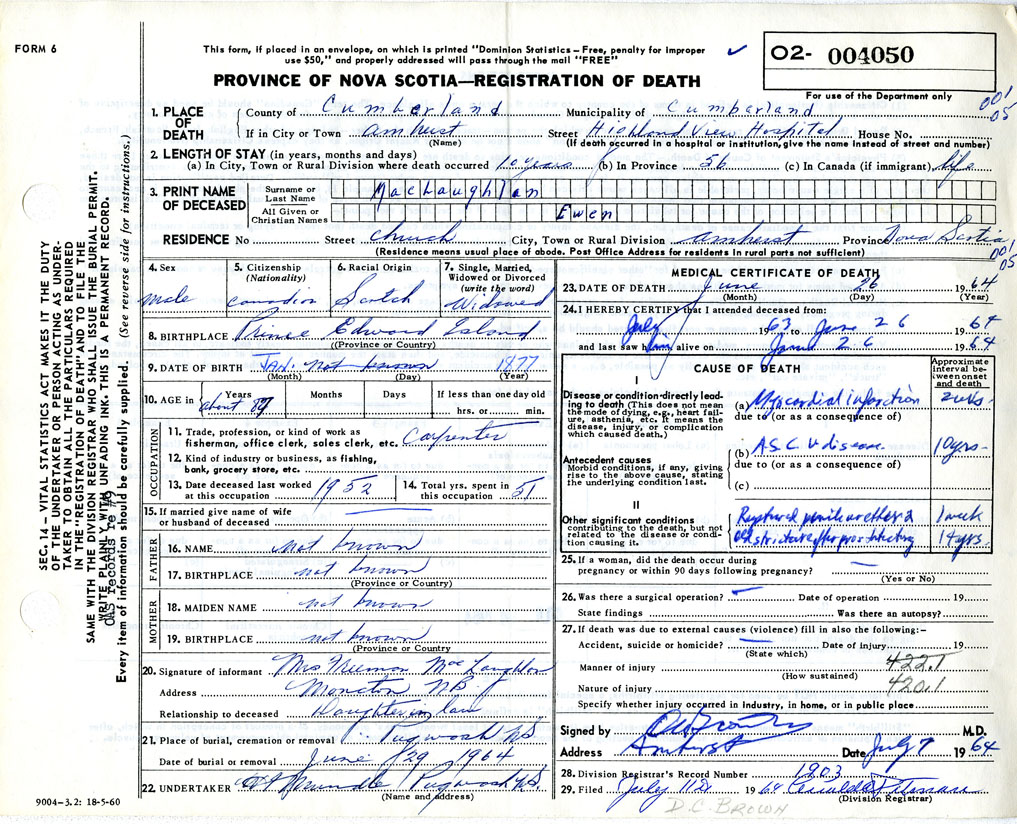 FORM 6
This form, if placed in an envelope, on which is printed "Dominion Statistics – Free, penalty for improper
use $50," and properly addressed will pass through the mail "FREE"
✓
02- 004050
PROVINCE OF NOVA SCOTIA—REGISTRATION OF DEATH
For use of the Department only
001
05
1. PLACE OF DEATH
County of Cumberland Municipality of Cumberland
If in City or Town Amherst Street Highland View Hospital House No.
(Name) (If death occurred in a hospital or institution, give the name instead of street and number)
2. LENGTH OF STAY (in years, months and days)
(a) In City, Town or Rural Division where death occurred 10 years (b) In Province 56 (c) In Canada (if immigrant) life
3. PRINT NAME OF DECEASED
Surname or Last Name MacLaughlan
All Given or Christian Names Ewen
RESIDENCE No Street Church City, Town or Rural Division Amherst Province Nova Scotia
(Residence means usual place of abode. Post Office Address for residents in rural parts not sufficient)
001
05
4. Sex male
5. Citizenship (Nationality) Canadian
6. Racial Origin Scotch
7. Single, Married, Widowed or Divorced (write the word) Widowed
8. BIRTHPLACE Prince Edward Island
(Province or Country)
9. DATE OF BIRTH JAN. not known 1877
(Month) (Day) (Year)
10. AGE in Years Months Days If less than one day old
about hrs. or min.
OCCUPATION
11. Trade, profession, or kind of work as
fisherman, office clerk, sales clerk, etc. Carpenter
12. Kind of industry or business, as fishing,
bank, grocery store, etc.
13. Date deceased last worked at this occupation 1952
14. Total yrs. spent in this occupation 51
15. If married give name of wife
or husband of deceased
FATHER
16. NAME not known
17. BIRTHPLACE not known
(Province or Country)
MOTHER
18. MAIDEN NAME not known
19. BIRTHPLACE not known
(Province or Country)
20. Signature of informant Mrs Mac Laughlan
Address Moncton NB.
Relationship to deceased Daughter in law
21. Place of burial, cremation or removal Pugwash NS
Date of burial or removal June 29 1964
22. UNDERTAKER Pugwash N.S.
(Name and address)
9004-3.2: 18-5-60
MEDICAL CERTIFICATE OF DEATH
23. DATE OF DEATH June 26 1964
(Month) (Day) (Year)
24. I HEREBY CERTIFY that I attended deceased from:
July 1963 to June 26 1964
and last saw him alive on June 26 1964
CAUSE OF DEATH
Approximate interval between onset and death
I
Disease or condition directly leading to death (This does not mean
the mode of dying, e.g., heart failure, asthenia, etc. It means the
disease, injury, or complication which caused death.)
(a) Myocardial infarction 2 wks-
due to (or as a consequence of)
Antecedent causes
Morbid conditions, if any, giving rise to the above cause, stating
the underlying condition last.
(b) A.S.C.V disease 10 yrs-
due to (or as a consequence of)
(c)
II
Other significant conditions
contributing to the death, but not related to the disease or condition causing it.
Ruptured penile urethra 1 week
stricture after prostatectomy 14 yrs.
25. If a woman, did the death occur during
pregnancy or within 90 days following pregnancy? —
(Yes or No)
26. Was there a surgical operation? — Date of operation 19
State findings Was there an autopsy?
27. If death was due to external causes (violence) fill in also the following:—
Accident, suicide or homicide? — Date of injury 19
(State which)
Manner of injury 422.1
(How sustained)
Nature of injury 420.1
Specify whether injury occurred in Industry, in home, or in public place
Signed by M.D.
Address Amherst Date July 7 1964
28. Division Registrar's Record Number 1903
29. Filed July 1964
(Division Registrar)
D.C. BROWN
SEC. 14—VITAL STATISTICS ACT MAKES IT THE DUTY
OF THE UNDERTAKER OR PERSON ACTING AS UNDER-
TAKER TO OBTAIN ALL THE PARTICULARS REQUIRED
IN THE "REGISTRATION OF DEATH" AND TO FILE THE
SAME WITH THE DIVISION REGISTRAR WHO SHALL ISSUE THE BURIAL PERMIT.
WRITE PLAINLY WITH UNFADING INK. THIS IS A PERMANENT RECORD.
OAS records re #9
Every item of information should be carefully supplied. (See reverse side for instructions.)